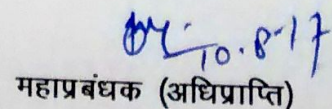 10.8.17
महाप्रबंधक (अधिप्राप्ति)